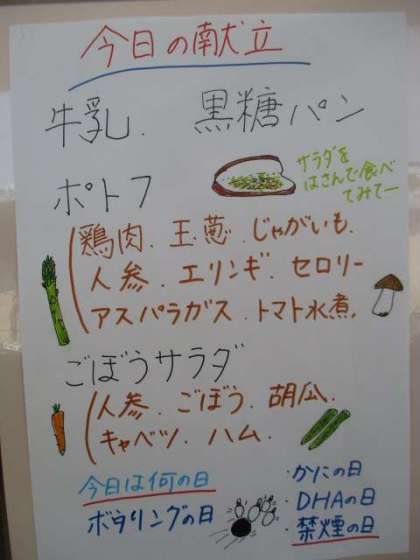 今日の献立
牛乳. 黒糖パン
サラダを
はさんで食べ
てみてー
ポトフ
鶏肉. 玉葱. じゃがいも.
人参. エリンギ. セロリー
アスパラガス. トマト水煮.
ごぼうサラダ
人参. ごぼう. 胡瓜.
キャベツ. ハム.
今日は何の日
ボウリングの日
・かにの日
・DHAの日
・禁煙の日